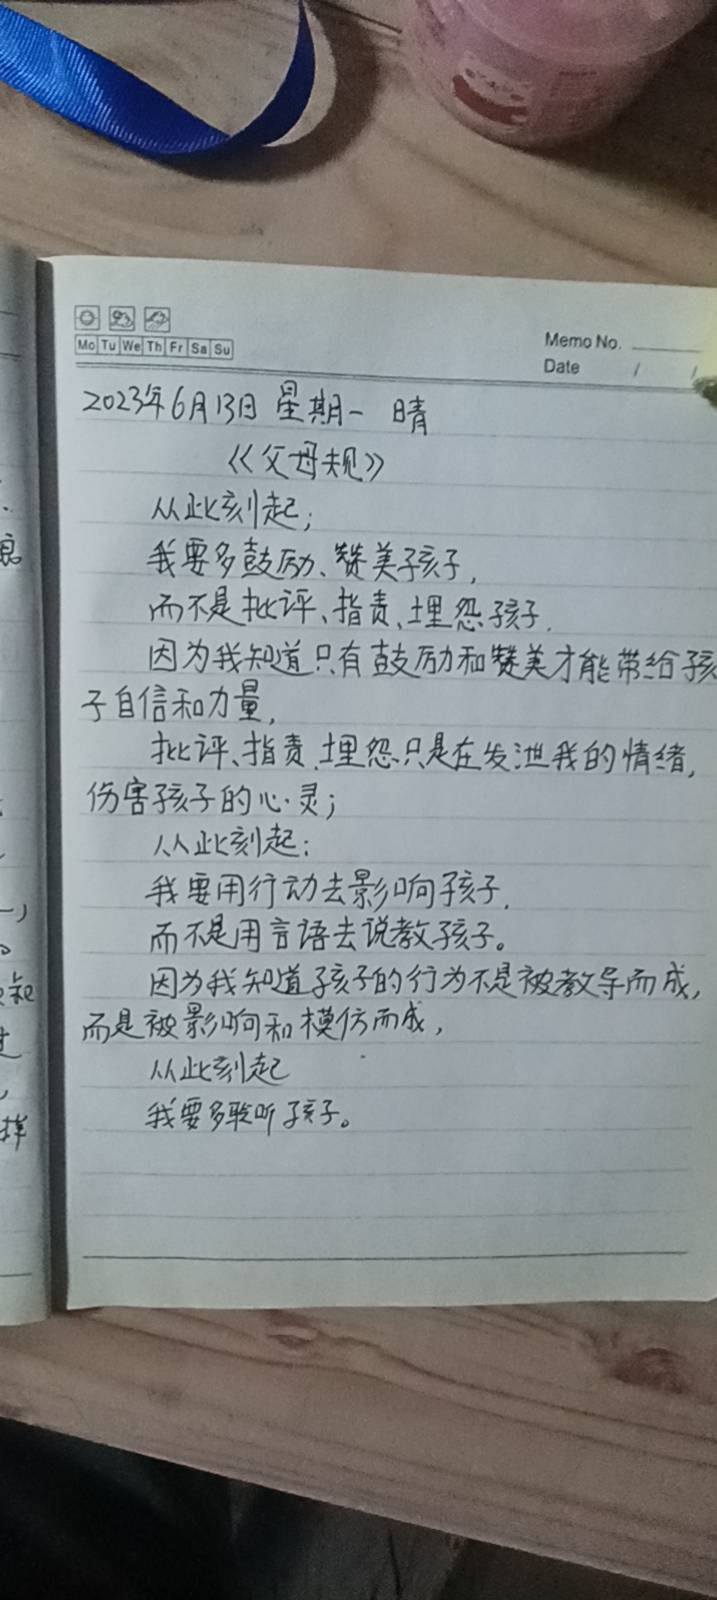 Mo Tu We Th Fr Sa Su
Memo No.
Date / /
2023年6月13日 星期一 晴
《父母规》
从此刻起;
我要多鼓励、赞美孩子,
而不是批评、指责、埋怨孩子.
因为我知道只有鼓励和赞美才能带给孩
子自信和力量,
批评、指责、埋怨只是在发泄我的情绪,
伤害孩子的心灵;
从此刻起:
我要用行动去影响孩子.
而不是用言语去说教孩子。
因为我知道孩子的行为不是被教导而成,
而是被影响和模仿而成,
从此刻起
我要多聆听孩子。